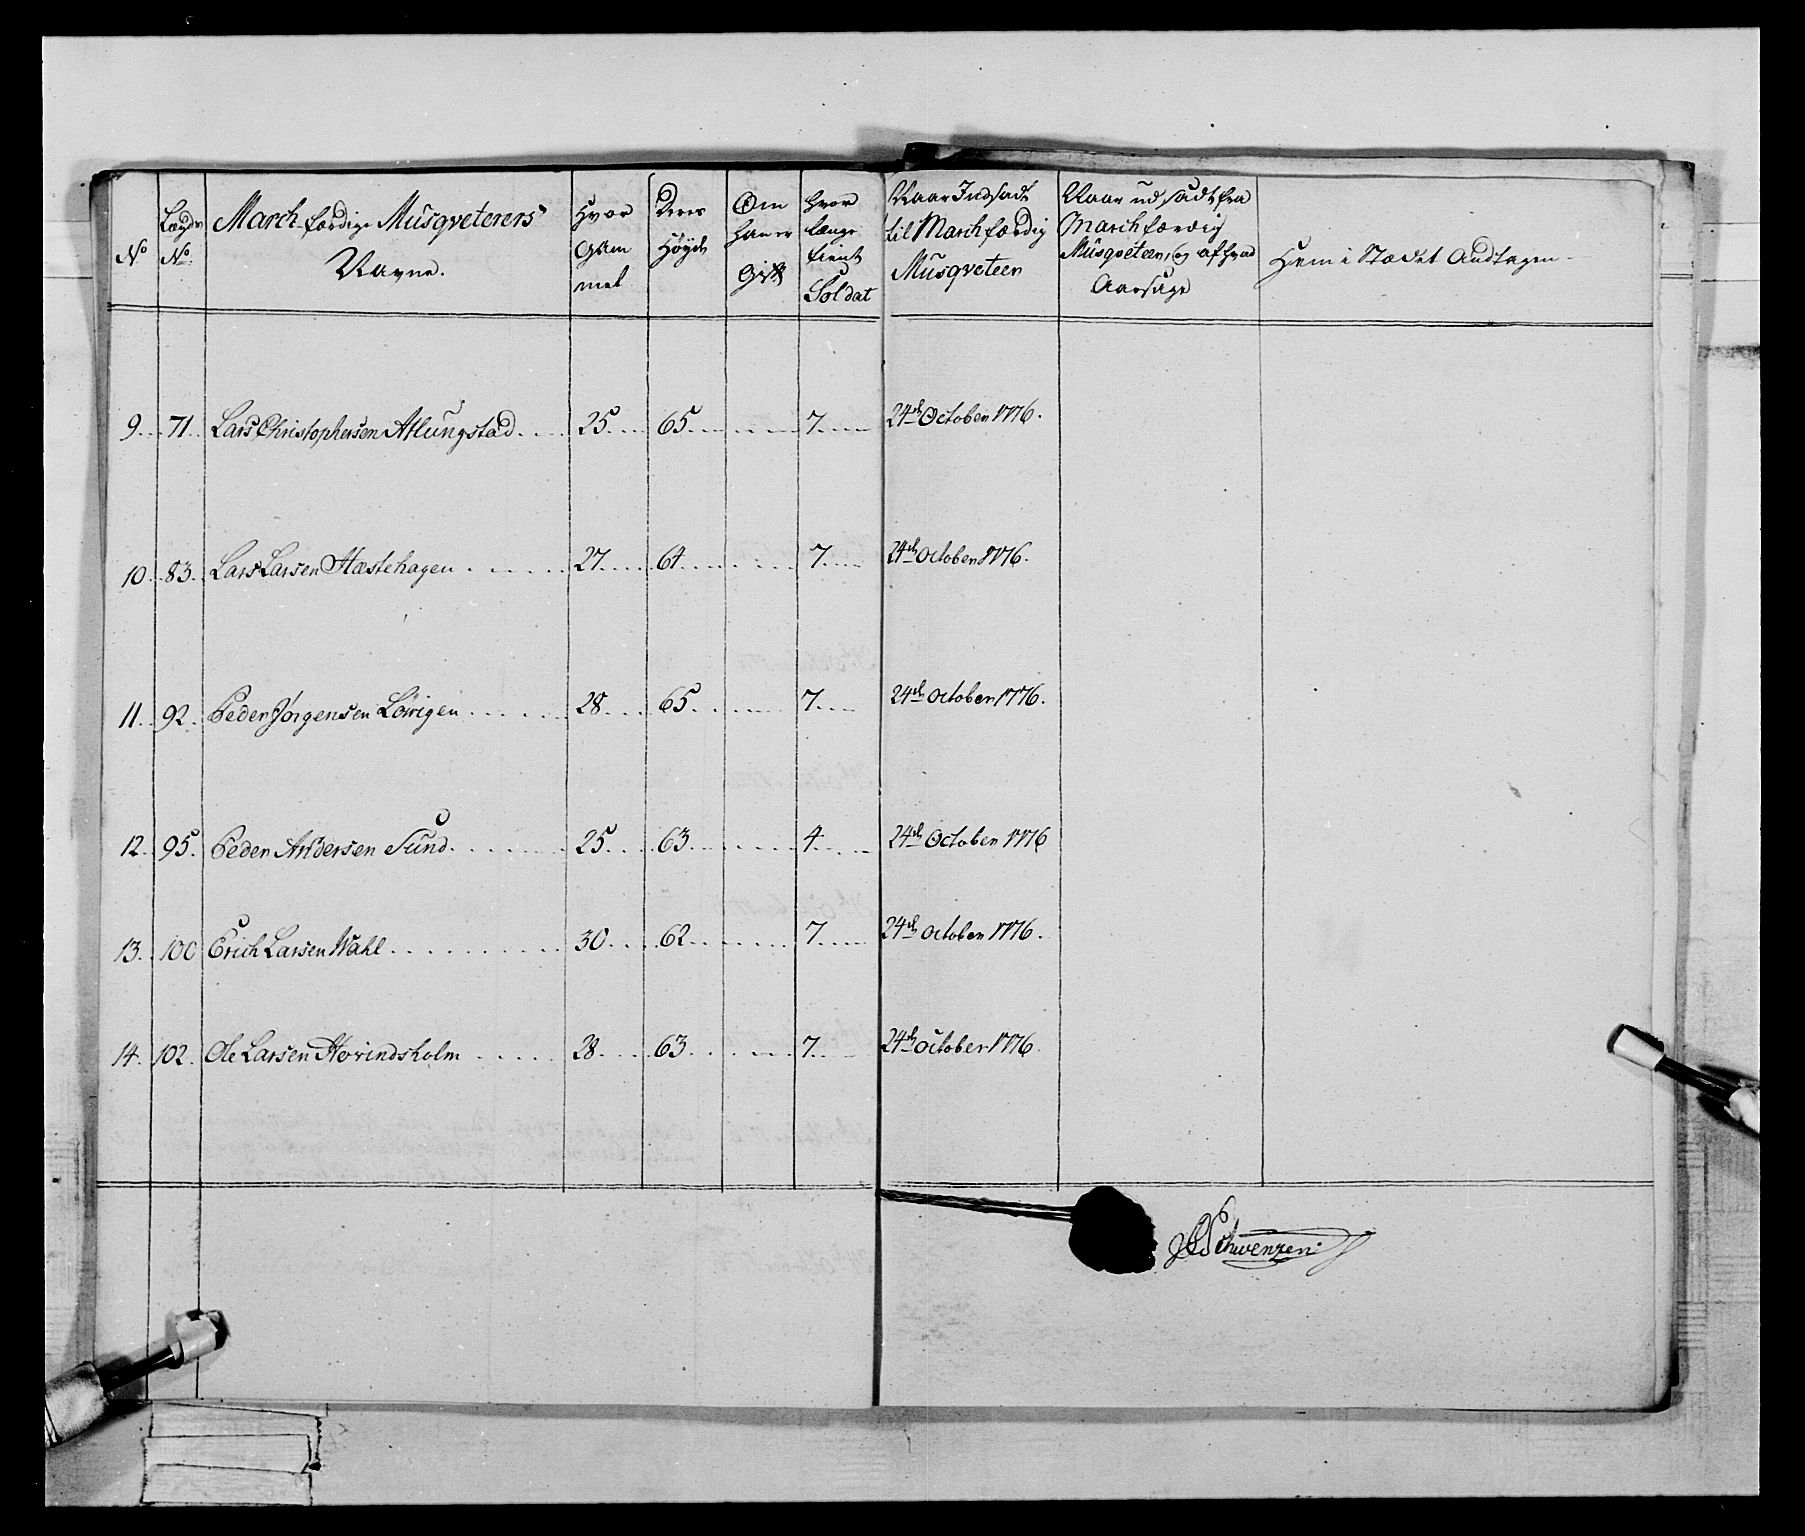 No
Lægds No
March-færdige Musqveterers Navne.
Hvor Gam mel
Deres Høyde
Om han er Gift
Hvor længe tient Soldat
Naar Indsadt til Marchfærdig Musqveteer
Naar udsadt fra Marchfærdig Musqveteer, og af hvad Aarsage
Hvem i Stædet Andtagen
9. 71. Lars Christophersen Atlungstad 25 65 7 24de October 1776.
10. 83. Lars Larsen Hæstehagen 27 64 7 24de October 1776.
11. 92. Peder Jørgensen Løvigen 28 65 7 24de October 1776.
12. 95. Peder Andersen Sund 25 63 4 24de October 1776
13. 100 Erich Larsen Wahl 30 62 7 24de October 1776.
14. 102. Ole Larsen Hovindsholm 28 63 7 24de October 1776.
Schwenzen